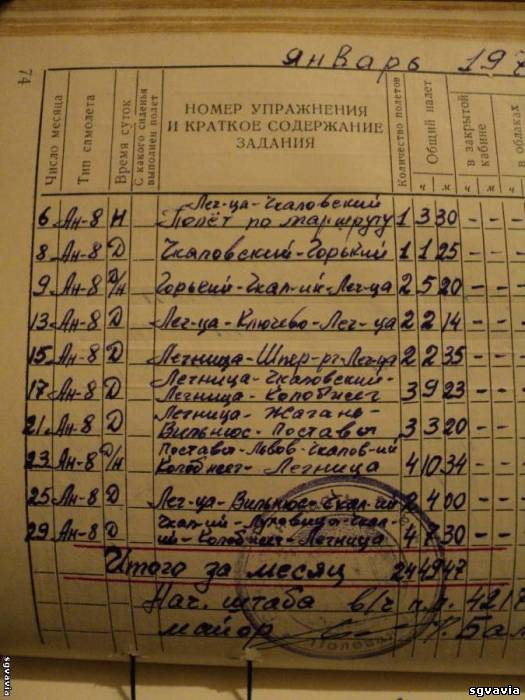 январь 197
74
Число месяца
Тип самолета
Время суток
С какого сиденья выполнен полет
НОМЕР УПРАЖНЕНИЯ
И КРАТКОЕ СОДЕРЖАНИЕ
ЗАДАНИЯ
Количество полетов
Общий налет
в закрытой кабине
в облаках
ч м ч м ч
Лег-ца-Чкаловский
6 Ан-8 Н Полёт по маршруту 1 3 30 - - -
8 Ан-8 Д Чкаловский-Горький 1 1 25 - - -
9 Ан-8 Д/Н Горький-Чкал-ий-Лег-ца 2 5 20 - - -
13 Ан-8 Д Лег-ца-Ключево-Лег-ца 2 2 14 - - -
15 Ан-8 Д Легница-Шпер-рг-Лег-ца 2 2 35 - - -
Легница-Чкаловский-
17 Ан-8 Д Легница-Колобжег 3 9 23 - - -
Легница-Жагань-
21 Ан-8 Д Вильнюс-Поставы 3 3 20 - - -
Поставы-Львов-Чкалов-ий
23 Ан-8 Д/Н Колобжег-Легница 4 10 34 - - -
25 Ан-8 Д Лег-ца-Вильнюс-Чкал-ий 2 4 00 - - -
Чкал-ий-Луховицы-Чкал-
29 Ан-8 Д ий-Колобжег-Легница 4 7 30 - - -
Итого за месяц 24 49 47
Нач. штаба в/ч п.п. 42
майор
sgvavia
sgvavia